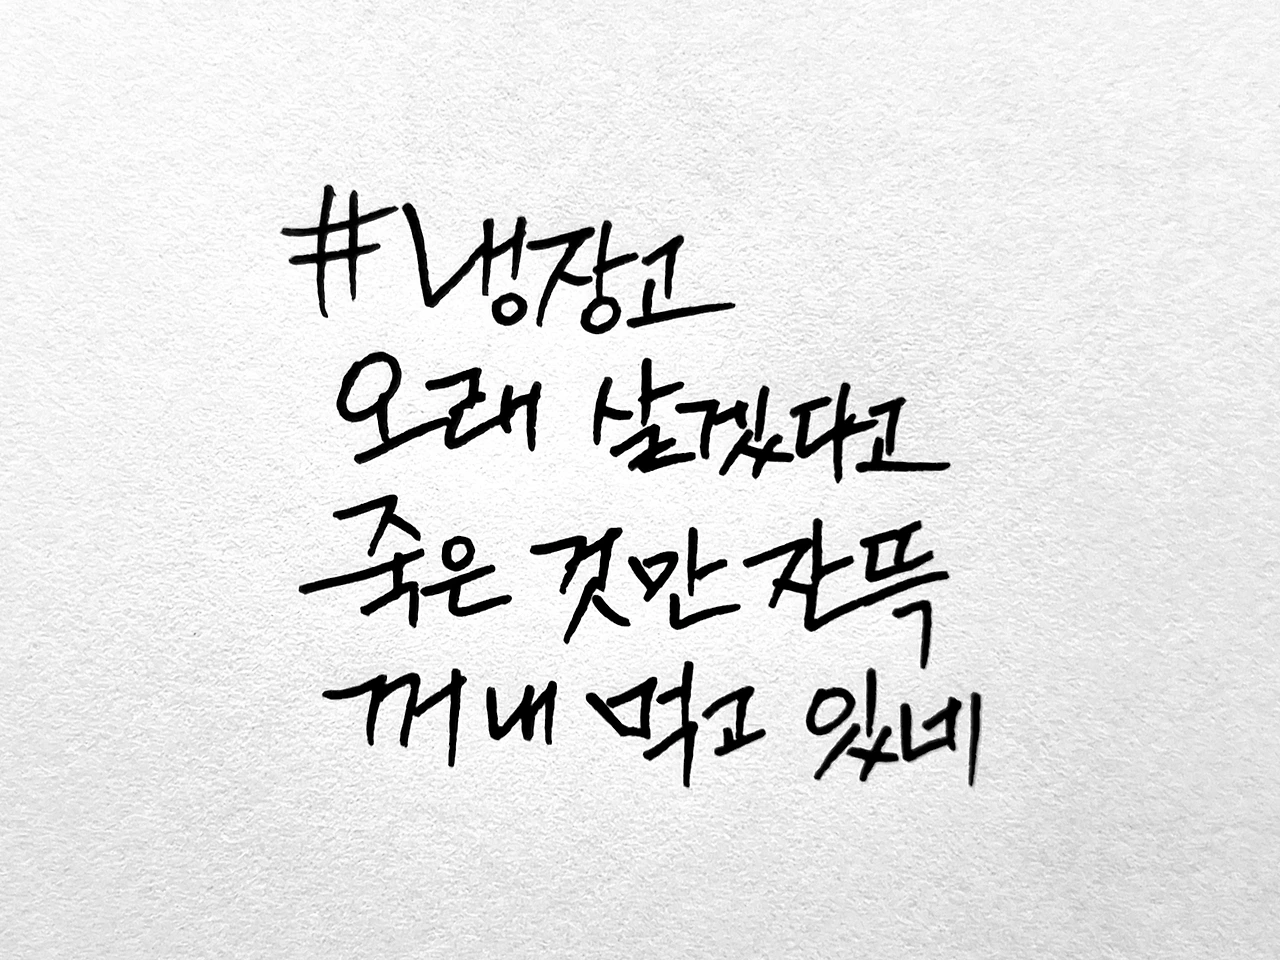 #냉장고
오래 살겠다고
죽은 것만 잔뜩
꺼내 먹고 있네